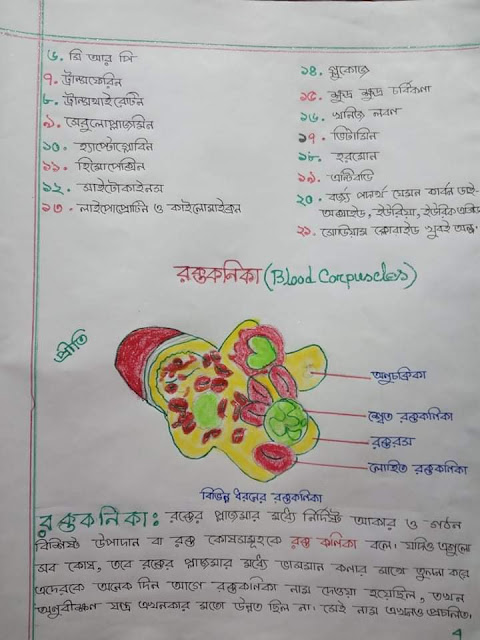 ৬. সি আর পি
৭. ট্রান্সফেরিন
৮. ট্রান্সথাইরেটিন
৯. সেরুলোপ্লাজমিন
১০. হ্যাপ্টোগ্লোবিন
১১. হিমোপেক্সিন
১২. সাইটোকাইনস
১৩. লাইপোপ্রোটিন ও কাইলোমাইক্রন
১৪. গ্লুকোজ
১৫. ক্ষুদ্র ক্ষুদ্র চর্বিকণা
১৬. খনিজ লবণ
১৭. ভিটামিন
১৮. হরমোন
১৯. এন্টিবডি
২০. বর্জ্য পদার্থ যেমন কার্বন ডাই-
অক্সাইড, ইউরিয়া, ইউরিক এসিড
২১. সোডিয়াম ক্লোরাইড খুবই অল্প।
রক্তকনিকা (Blood Corpuscles)
প্রীতি
অনুচক্রিকা
শ্বেত রক্তকনিকা
রক্তরস
লোহিত রক্তকনিকা
বিভিন্ন ধরনের রক্তকনিকা
রক্তকনিকা: রক্তের প্লাজমার মধ্যে নির্দিষ্ট আকার ও গঠন
বিশিষ্ট উপাদান বা রক্ত কোষসমূহকে রক্ত কনিকা বলে। যদিও এগুলো
সব কোষ, তবে রক্তের প্লাজমার মধ্যে ভাসমান কনার সাথে তুলনা করে
এদেরকে অনেক দিন আগে রক্তকনিকা নাম দেওয়া হয়েছিল, তখন
অনুবীক্ষণ যন্ত্র এখনকার মতো উন্নত ছিল না। সেই নাম এখনও প্রচলিত।